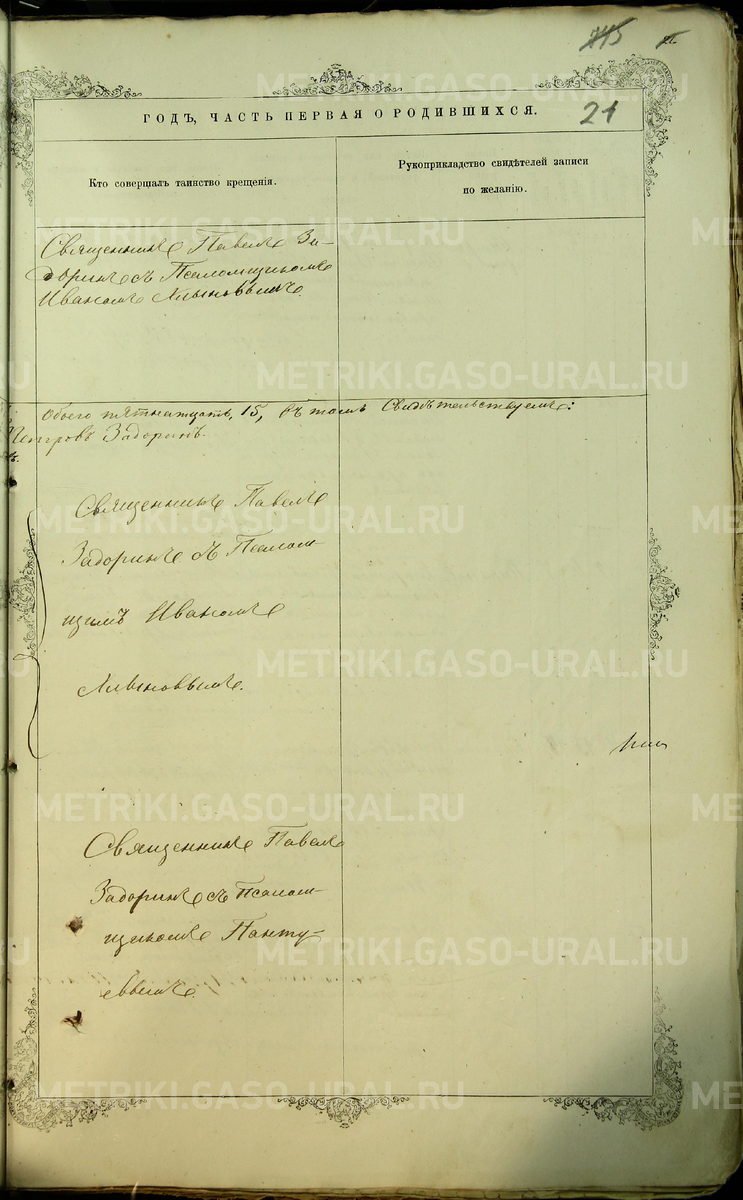 115
21
ГОДЪ, ЧАСТЬ ПЕРВАЯ О РОДИВШИХСЯ.
Кто совершалъ таинство крещенія.
Рукоприкладство свидѣтелей записи
по желанію.
Священникъ Павелъ За-
доринъ съ Псаломщикомъ
Иваномъ
обоего пятнатцать, 15, въ томъ Свидѣтельствуемъ:
Петровъ Задоринъ.
Священникъ Павелъ
Задоринъ съ Псалом-
щикомъ Иваномъ
Священникъ Павелъ
Задоринъ съ Псалом-
щикомъ Панту-
евымъ.
METRIKI.GASO-URAL.RU